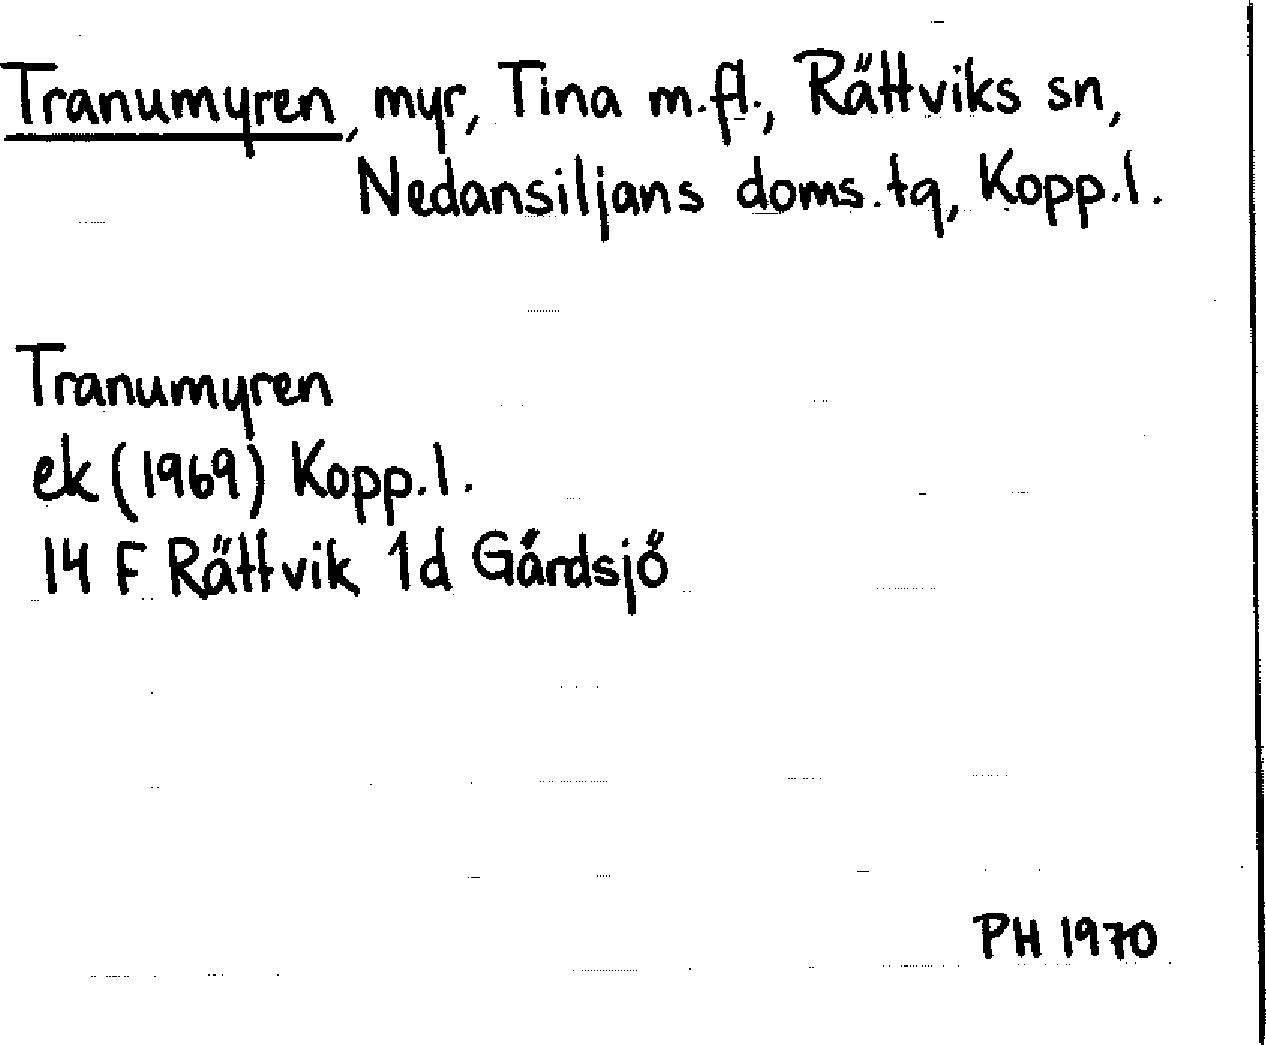 Tranumyren, myr, Tina m.fl., Rättviks sn,
Nedansiljans doms.tg, Kopp.l.
Tranumyren
ek (1969) Kopp.l.
14 F Rättvik 1d Gärdsjö
PH 1970